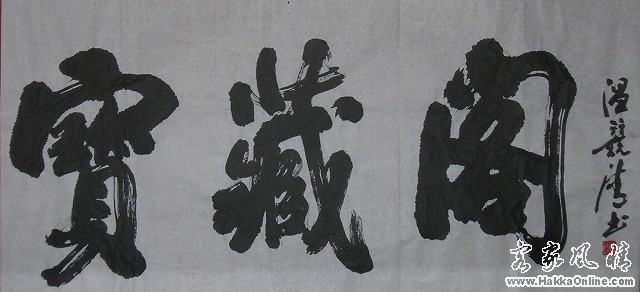 寶藏阁
温
书
客家風情
www.HakkaOnline.com